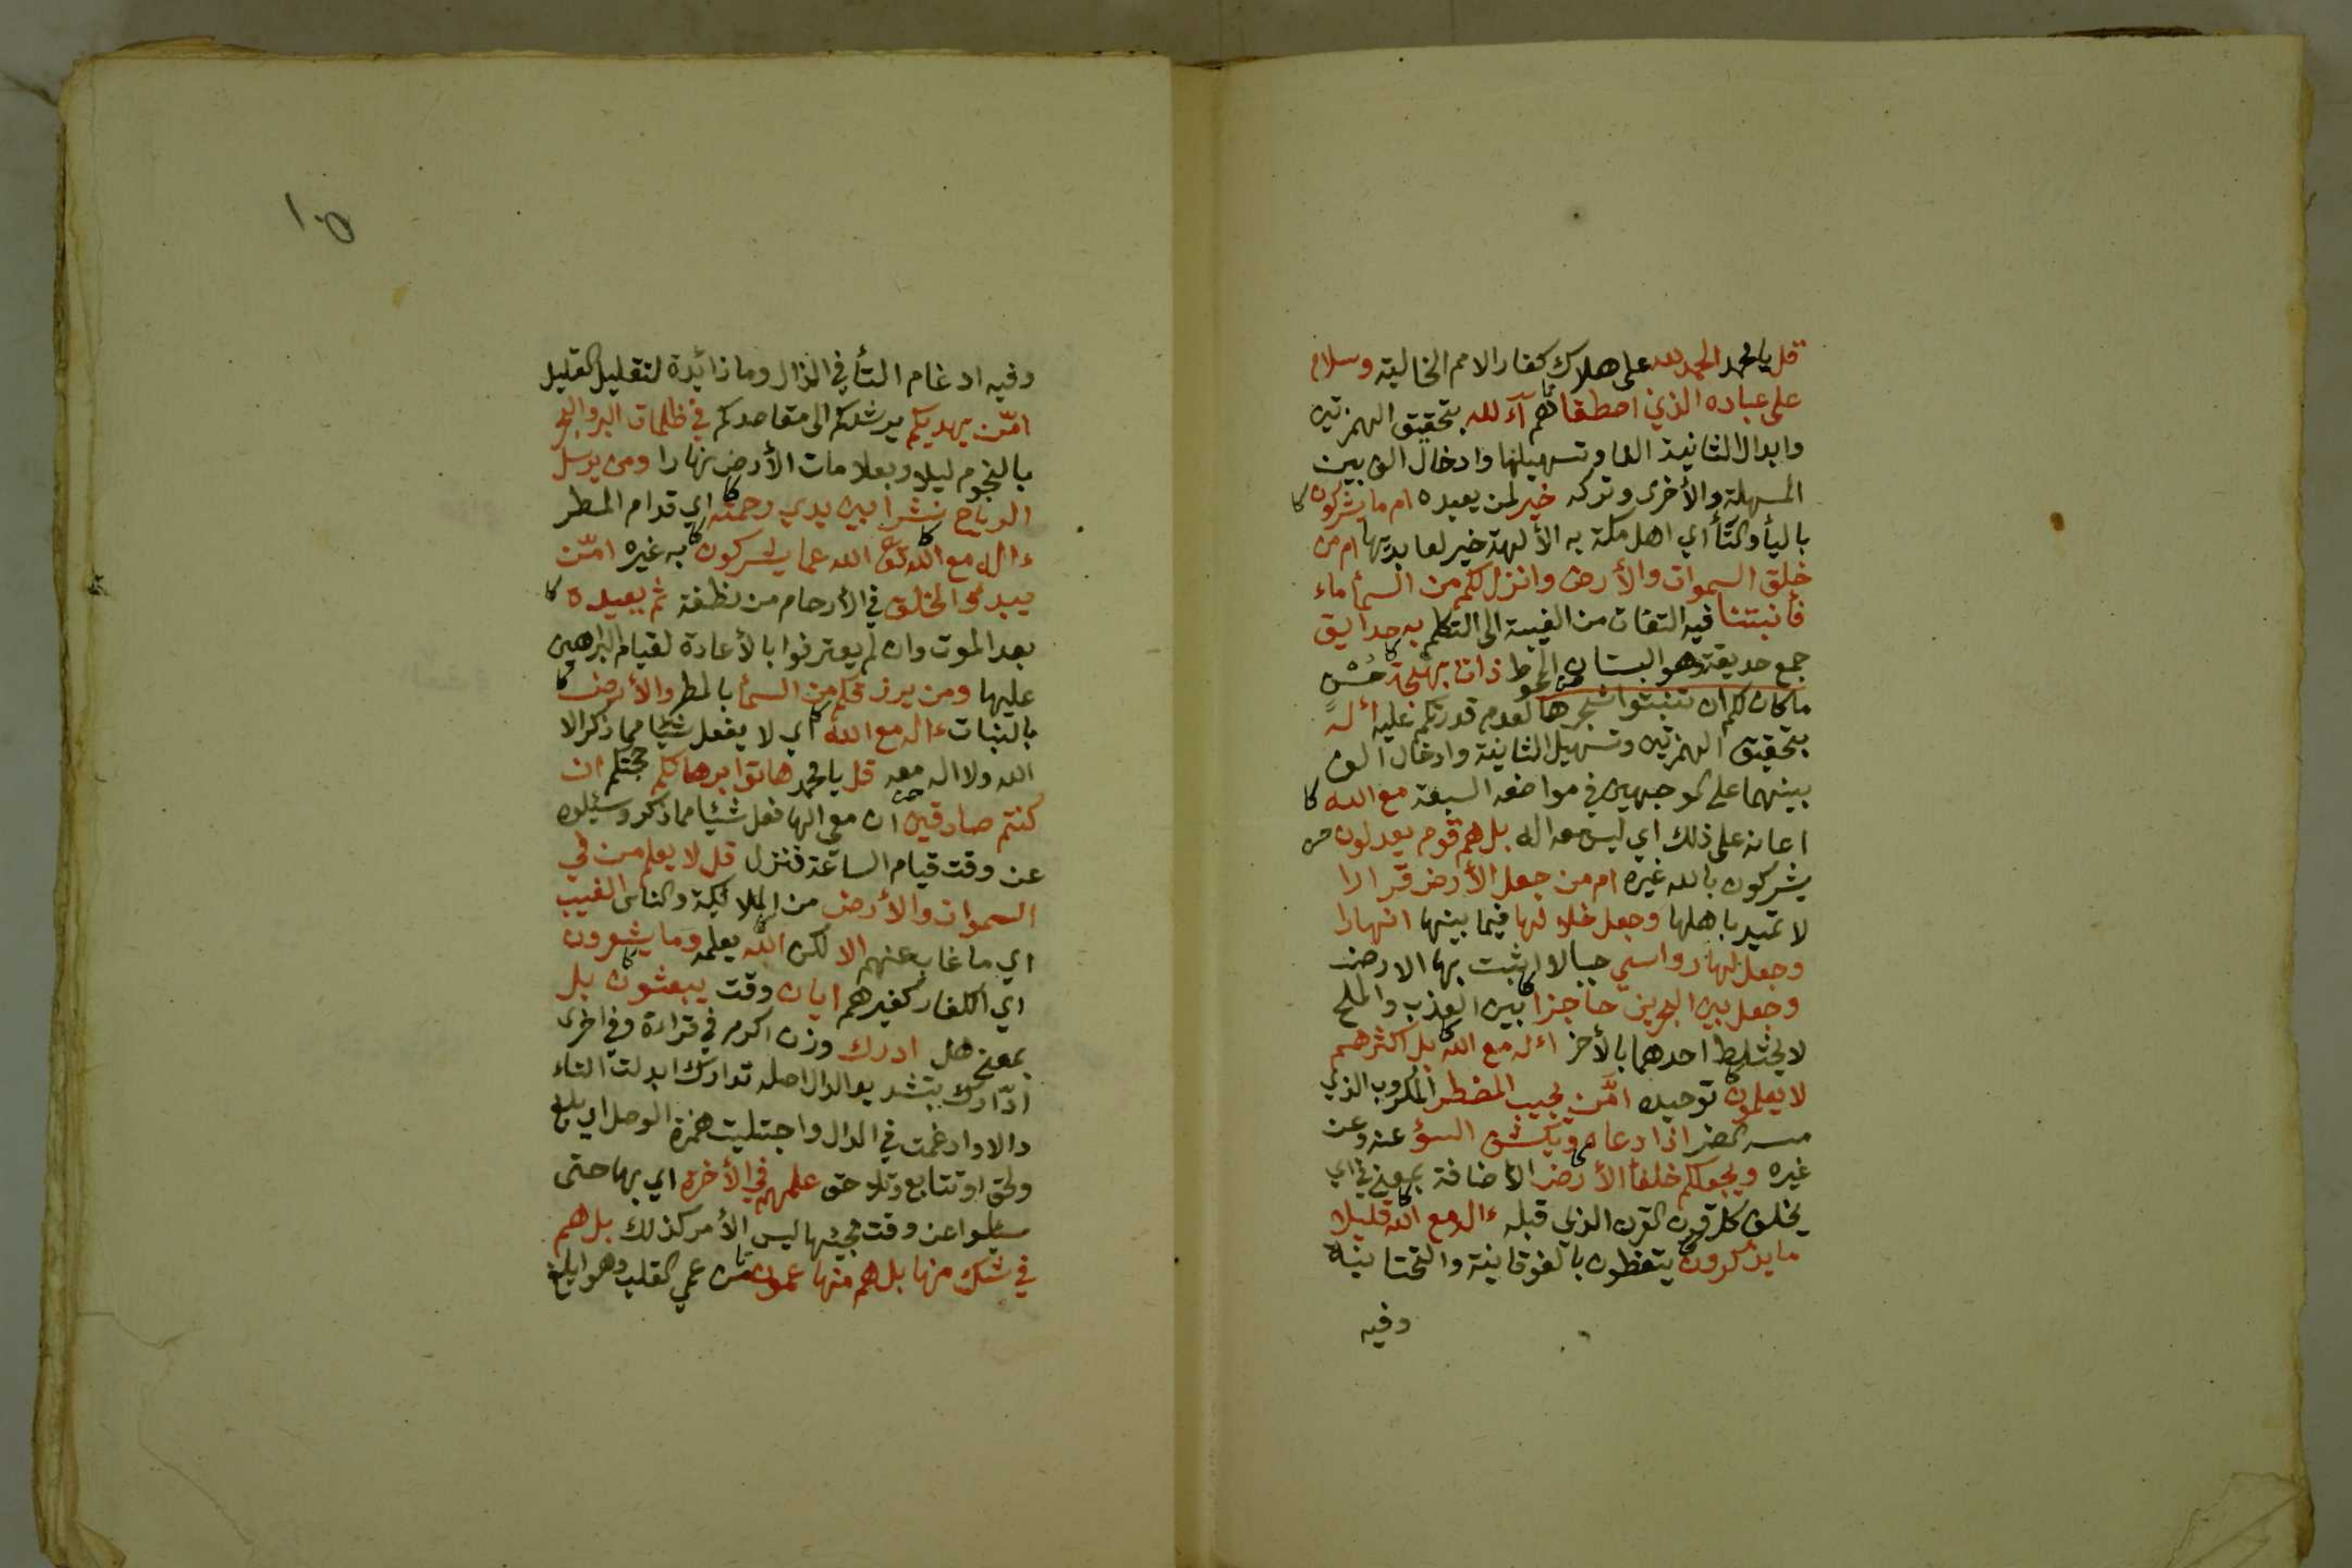 قل يا محمد الحمد لله على هلاك كفار الامم الخالية وسلام
على عباده الذين اصطفا هم آءلله بتحقيق الهمزتين
وابدال الثانية الفا وتسهيلها وادخال الف بين
المسهلة والأخرى وتركه خير لمن يعبده ام ما يشركون
باليأ والتأ اي اهل مكة به الألهة خير لعابديها ام من
خلق السموات والأرض وانزل لكم من السمأ ماء
فأنبتنا فيه التفات من الغيبة الى التكلم به حدايق
جمع حديقة وهو البستان المحوط ذات بهجة حُسْنٍ
ما كان لكم ان تنبتوا شجرها لعدم قدرتكم عليه أءله
بتحقيق الهمزتين وتسهيل الثانية وادخال الف
بينهما على الوجهين في مواضعه السبعة مع الله
اعانه على ذلك اي ليس معه اله بل هم قوم يعدلون
يشركون بالله غيره ام من جعل الأرض قرارا
لا تميد باهلها وجعل خلالها فيما بينها انهارا
وجعل لها رواسي جبالا اثبت بها الارض
وجعل بين البحرين حاجزا بين العذب والملح
لا يختلط احدهما بالأخر اءله مع الله بل اكثرهم
لا يعلمون توحيده امَّن يجيب المضطر المكروب الذي
مسه الضر اذا دعاه ويكشف السؤ عنه وعن
غيره ويجعلكم خلفأ الأرض الأضافة بمعنى في اي
يخلف كل قرن القرن الذي قبله ءاله مع الله قليلا
ما يذكرون يتعظون بالفوقانية والتحتانية
وفيه
١٠٥
وفيه ادغام التأ في الذال وما زائدة لتقليل القليل
امّن يهديكم يرشدكم الى مقاصدكم في ظلمات البر والبحر
بالنجوم ليلا وبعلامات الأرض نهارا ومن يرسل
الرياح نشرا بين يدي رحمته اي قدام المطر
ءاله مع الله تعالى الله عما يشركون به غيره امّن
يبدؤ الخلق في الأرحام من نطفة ثم يعيده
بعد الموت وان لم يعترفوا بالأعادة لقيام البراهين
عليها ومن يرزقكم من السمأ بالمطر والأرض
بالنبات ءاله مع الله اي لا يفعل شيئا مما ذكر الا
الله ولا اله معه قل يا محمد هاتوا برهانكم حجتكم ان
كنتم صادقين ان معي الها فعل شيئا مما ذكر وسئلوه
عن وقت قيام الساعة فنزل قل لا يعلم من في
السموات والأرض من الملائكة والناس الغيب
اي ما غاب عنهم الا لكن الله يعلمه وما يشعرون
اي الكفار كغيرهم ايان وقت يبعثون بل
بمعنى هل ادرك وزن اكرم في قراءة وفي اخرى
ادّارك بتشديد الدال اصله تدارك ابدلت التاء
دالا وادغمت في الدال واجتلبت همزة الوصل اي بلغ
ولحق او تتابع وتلاحق علمهم في الأخرة اي بها حتى
سئلوا عن وقت مجيئها ليس الأمر كذلك بل هم
في شك منها بل هم منها عمون من عمي القلب وهو ابلغ